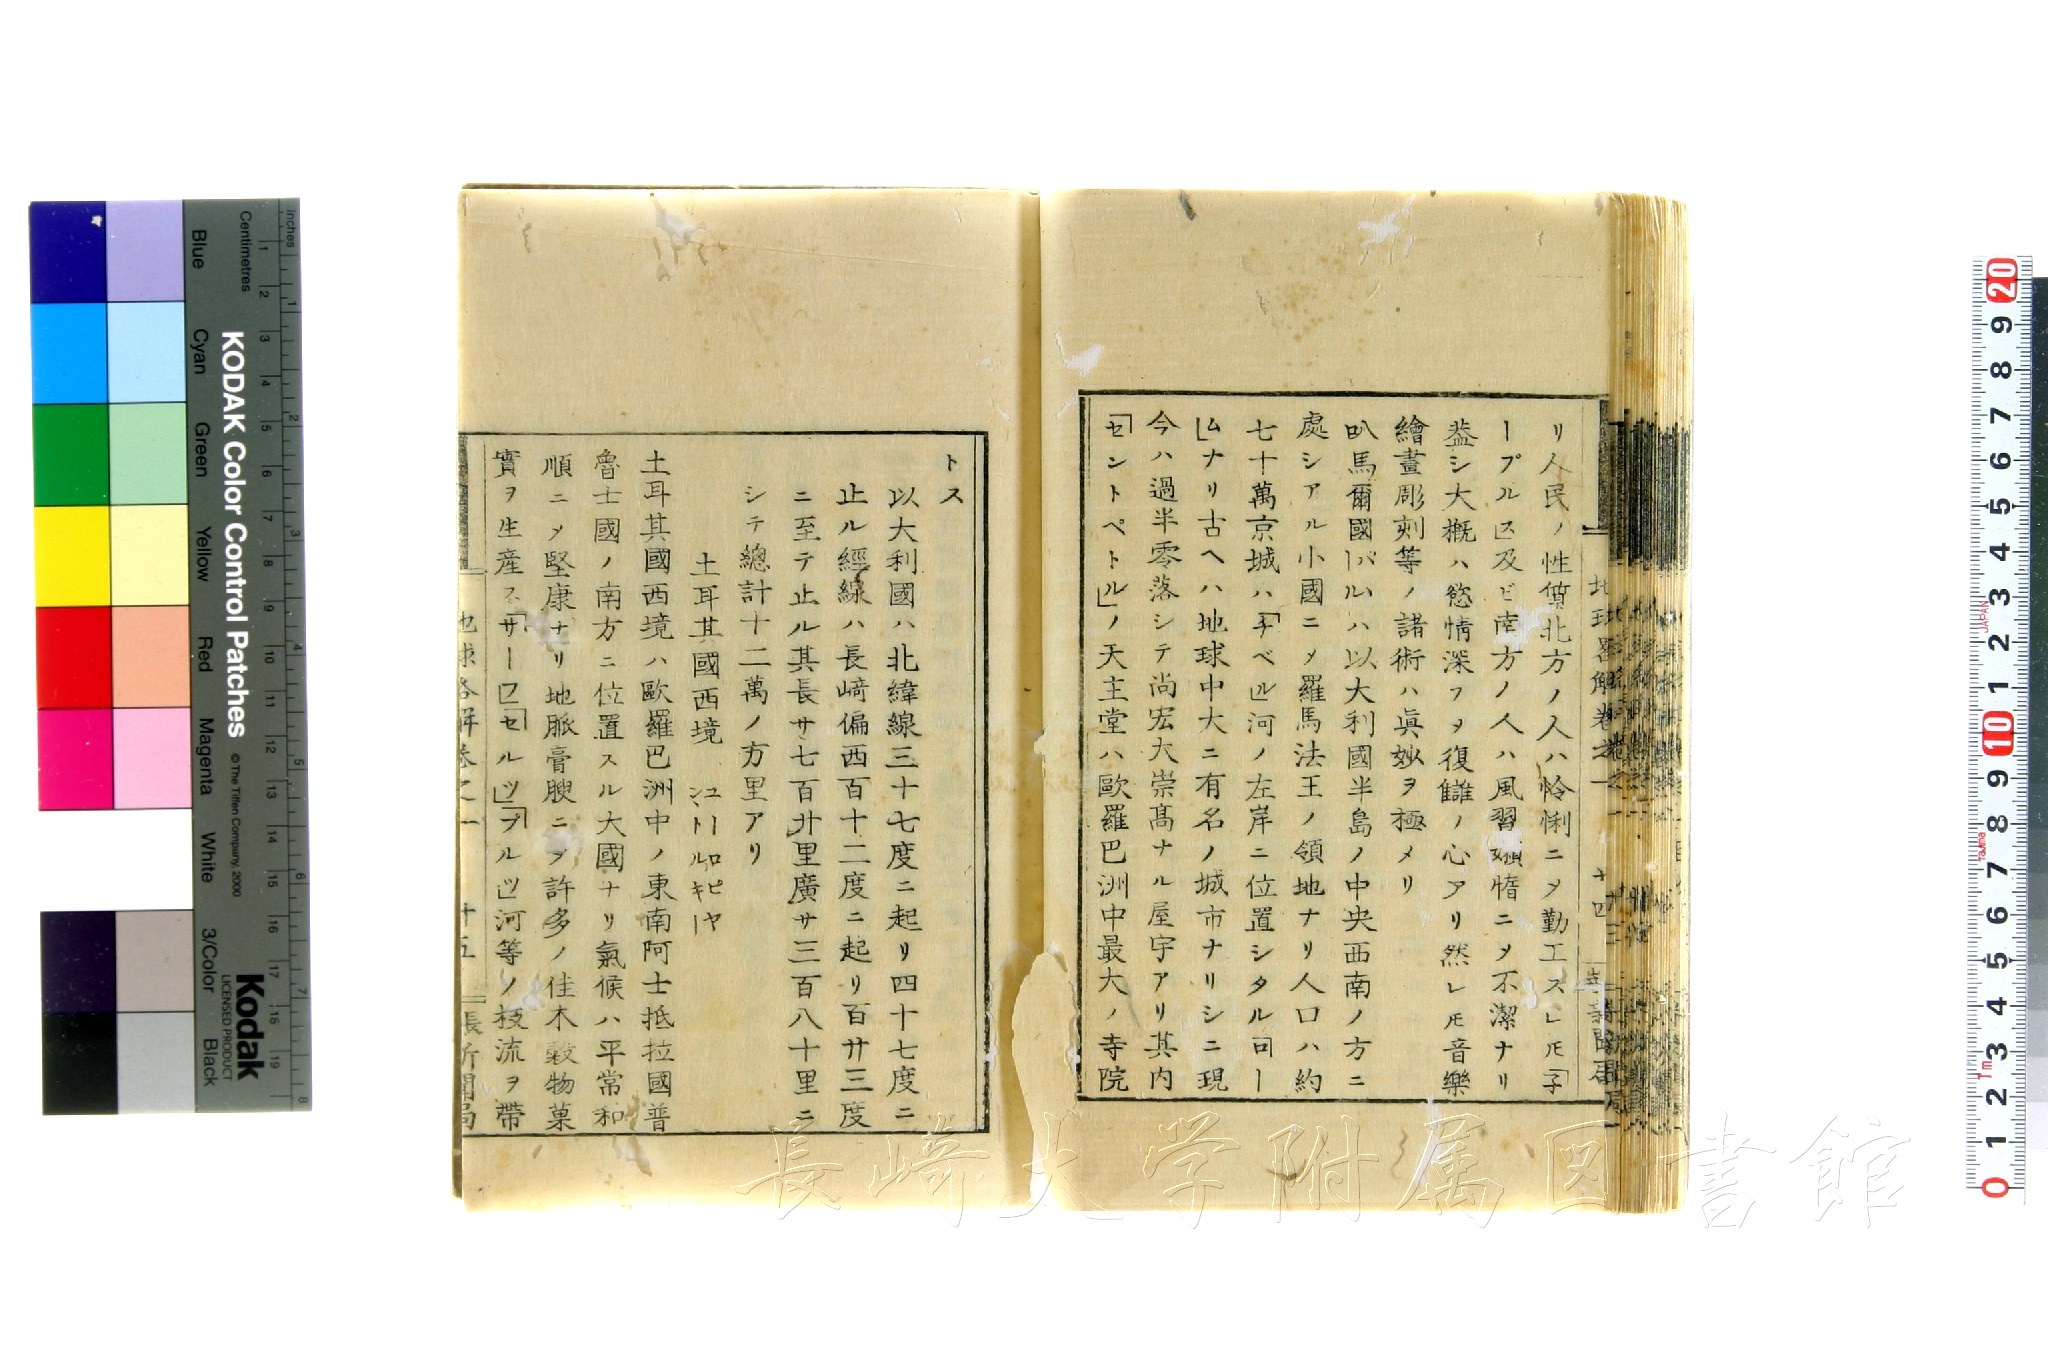 リ人民ノ性質北方ノ人ハ怜悧ニメ勤工スレ𪜈「子
ープル」及ビ南方ノ人ハ風習嬾惰ニメ不潔ナリ
葢シ大概ハ慾情深フヲ復讎ノ心アリ然レ𪜈音樂
繪畫彫刻等ノ諸術ハ眞妙ヲ極メリ
叭馬爾國「バル」ハ以大利國半島ノ中央西南ノ方ニ
處シアル小國ニメ羅馬法王ノ領地ナリ人口ハ約
七十萬京城ハ「子ベル」河ノ左岸ニ位置シタルロー
ム」ナリ古ヘハ地球中大ニ有名ノ城市ナリシニ現
今ハ過半零落シテ尚宏大崇髙ナル屋宇アリ其内
「セントペトル」ノ天主堂ハ歐羅巴洲中最大ノ寺院
トス
以大利國ハ北緯線三十七度ニ起リ四十七度ニ
止ル經線ハ長﨑偏西百十二度ニ起リ百廿三度
ニ至テ止ル其長サ七百廾里廣サ三百八十里ニ
シテ總計十二萬ノ方里アリ
土耳其國西境 ユーロピヤントルキー
土耳其國西境ハ歐羅巴洲中ノ東南阿士抵拉國普
魯士國ノ南方ニ位置スル大國ナリ氣候ハ平常和
順ニメ堅康ナリ地脈膏腴ニヲ許多ノ佳木穀物菓
實ヲ生産ス「サーヒ」「セルツ」「プルツ」河等ノ枝流ヲ帶
地球畧解卷之一
十四
地球畧解卷之一
十五
長﨑大学附属図書館
KODAK Color Control Patches
© The Tiffen Company, 2000
Kodak
LICENSED PRODUCT
inches
Centimetres
Blue
Cyan
Green
Yellow
Red
Magenta
White
3/Color
Black